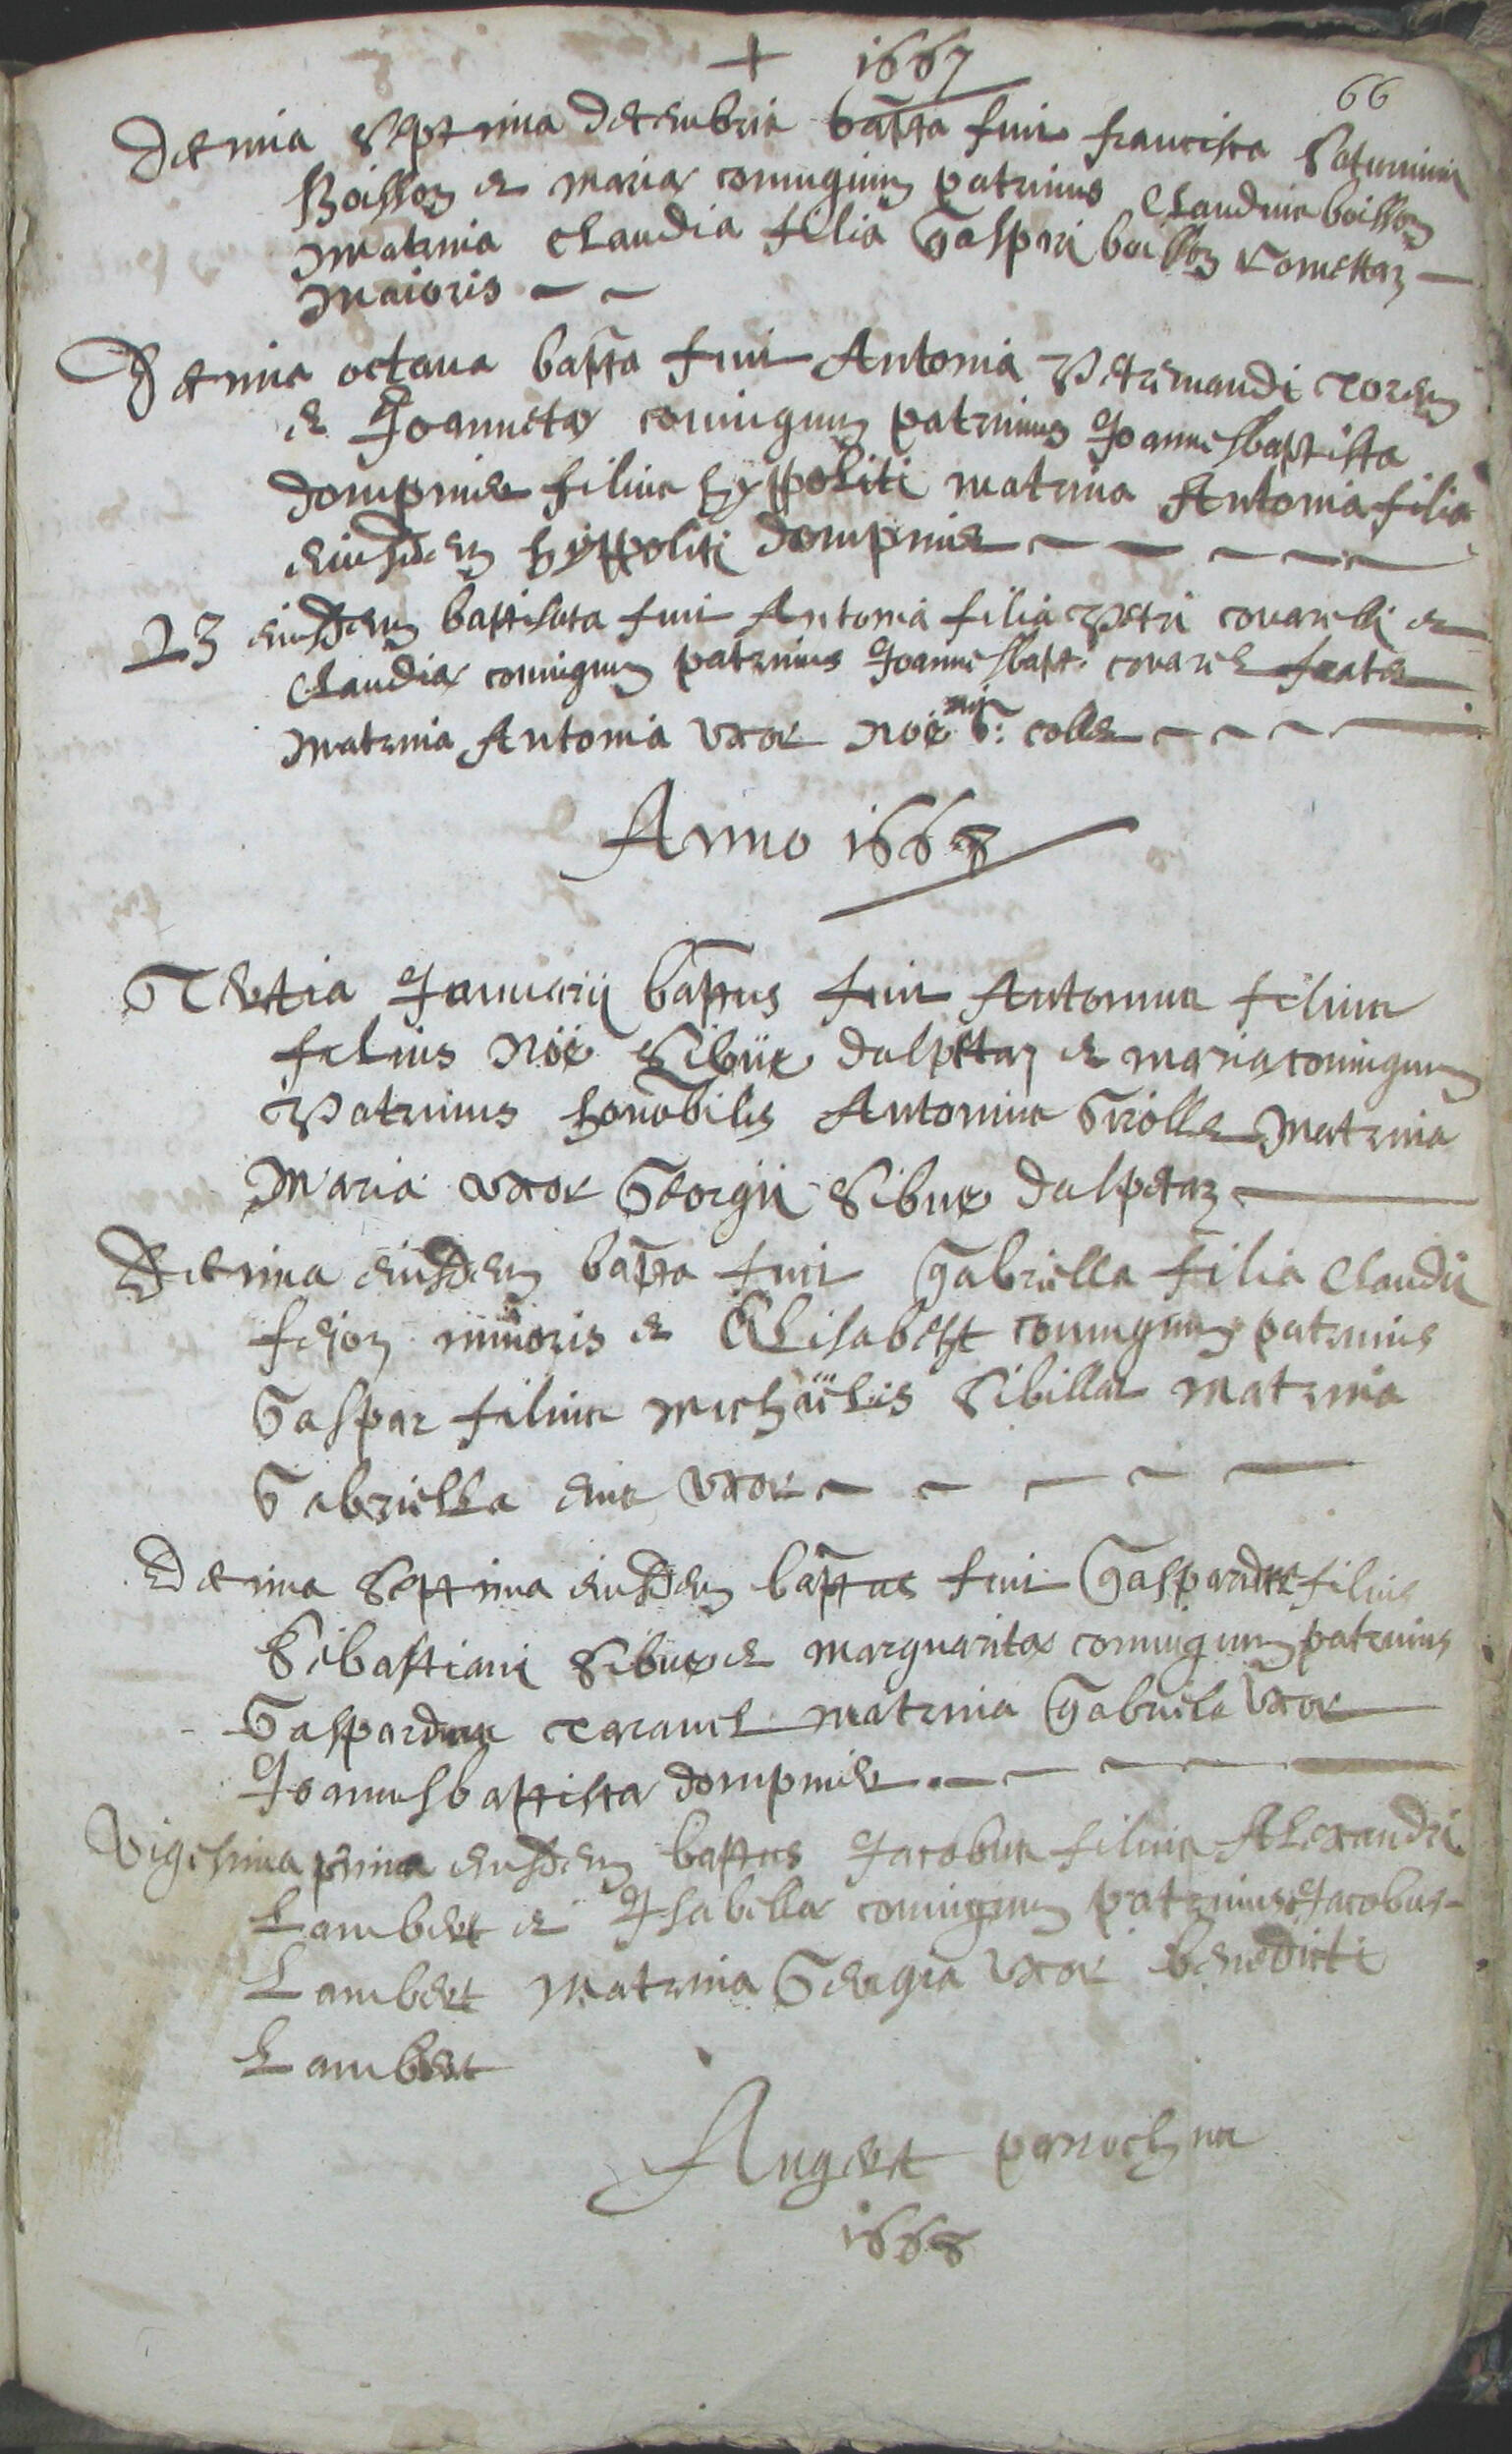 + 1667
66
Decima septima decembris bapta fuit francisca Saturnini
Boisson et Mariæ coniugum patrinus Claudius boisson
Matrina Claudia filia Gaspari boisson
Maioris
Decima octava bapta fuit Antonia Petrimandi
et Joannetæ coniugum patrinus Joannesbaptista
dompnier filius hyppoliti matrina Antonia filia
eiusdem hyppoliti dompnier
23 eiusdem baptisata fuit Antonia filia Petri covarelli et
Claudiæ coniugum patrinus Joannesbapt: covarel frater
matrina Antonia uxor Noë colle
Anno 1668
Tertia Januarii baptus fuit Antonius filius
filius Noë Sibue dalpettaz et mariæ coniugum
Patrinus honobilis Antonius Trolle matrina
Maria uxor Georgii Sibue dalpetaz
Decima eiusdem bapta fuit Gabriella filia Claudii
feior minoris et Elisabeht coniugum patrinus
Gaspar filius Michaëlis Sibillat matrina
Gabriella eius uxor
Decima septima eiusdem baptus fuit Gaspardus filius
Sibastiani Sibue et marguaritæ coniugum patrinus
Gaspardus taravel matrina Gabriela uxor
Joannisbaptistæ dompnier
Vigesima prima eiusdem baptus Jacobus filius Alexandri
Lambert et Isabellæ coniugum patrinus Jacobus
Lambert matrina Gergia uxor benedicti
Lambert
Angert parochus
1668